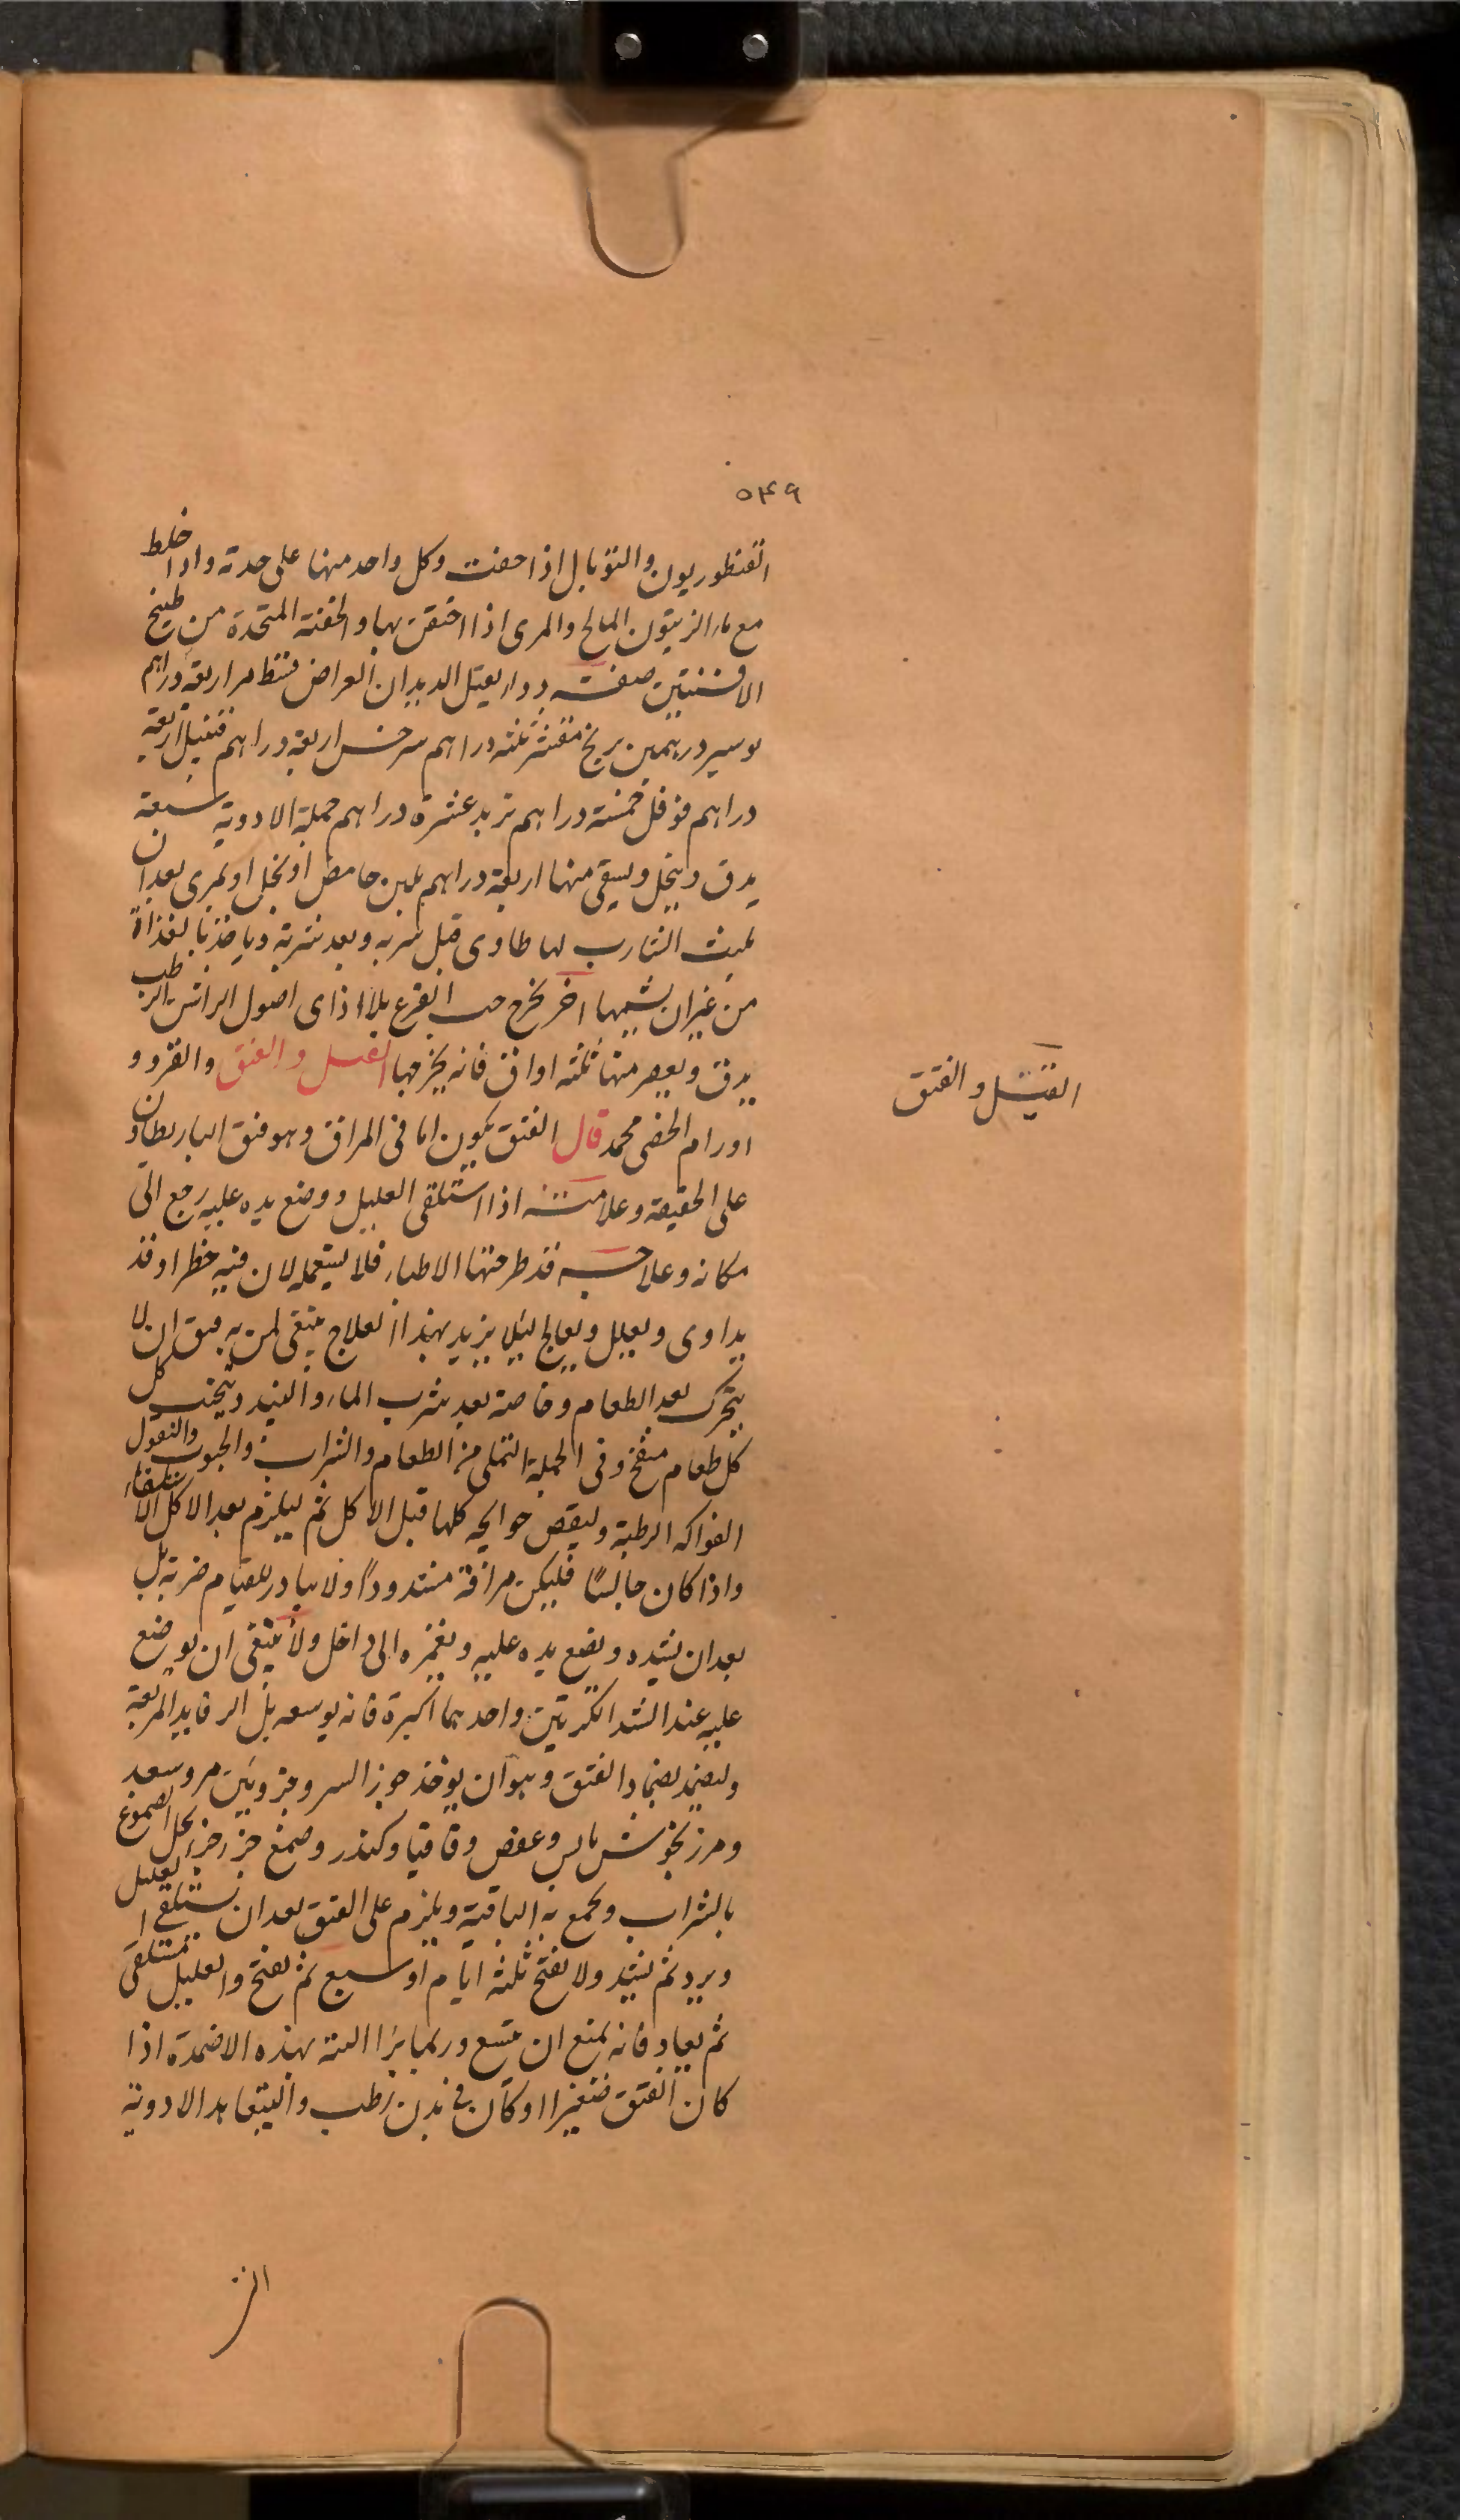 ٥٤٩
القنطوريون والتوبال اذا حقنت وكل واحد منها على حدته واذا خلط
مع ماء الزيتون المالح والمرى اذا احتقن بها والحقنة المتخذة من طبيخ
الافسنتين صفة دواء يقتل الديدان العراض قسط مر اربعة دراهم
درهمين برنج مقشر ثلثة دراهم سرخس اربعة دراهم قنبيل اربعة
دراهم فوفل خمسة دراهم تربد عشرة دراهم جملة الادوية سبعة
يدق وينخل ويسقى منها اربعة دراهم بلبن حامض او بخل او بمرى بعد ان
يلبث الشارب لها طاوى قبل شربه وبعد شربه وياخذ بالغذاة
من غير ان يشيها اخر يخرج حب القرع بلا اذاى اصول الراسن الرطب
يدق ويعصر منها ثلثة اواق فانه يخرجها القيل والفتق والقرو و
اورام الخصى محمد قال الفتق يكون اما فى المراق وهو فتق الباريطاون
على الحقيقة وعلامته اذا استلقى العليل ووضع يده عليه رجع الى
مكانه وعلاجه قد طرحتها الاطباء فلا يستعمله لان فيه خطر او قد
يداوى ويعلل ويعالج ليلا يزيد بهذا العلاج ينبغى لمن به فتق ان لا
يتحرك بعد الطعام وخاصة بعد شرب الماء والنبيذ ويتجنب كل
كل طعام منفخ وفى الجملة التملى من الطعام والشراب والحبوب والبقول
الفواكه الرطبة وليقض حوايجه كلها قبل الاكل ثم ليلزم بعد الاكل الاستلقاء
واذا كان جالسا فليكن مراقه مشدودا ولا يبادر للقيام ضربة بل
بعد ان يشده ويضع يده عليه ويغمزه الى داخل ولا ينبغى ان يوضع
عليه عند الشد انكرتين واحدهما اكبرة فانه يوسعه بل الرفايد المربعة
وليضمد بضماد الفتق وهو ان يوخذ جوز السرو جزوين مر وسعد
ومرزنجوش يابس وعفص وقاقيا وكندر وصمغ جزء جزء يحل الصموغ
بالشراب ويجمع به الباقية ويلزم على الفتق بعد ان يستلقى العليل
ويرد ثم يشد ولا يفتح ثلثه ايام او سبع ثم يفتح والعليل مستلقى
ثم يعاد فانه يمنع ان يتسع وربما برا البتة بهذه الاضمدة اذا
كان الفتق صغيرا او كان فى بدن رطب وليتعاهد الادوية
القيل والفتق